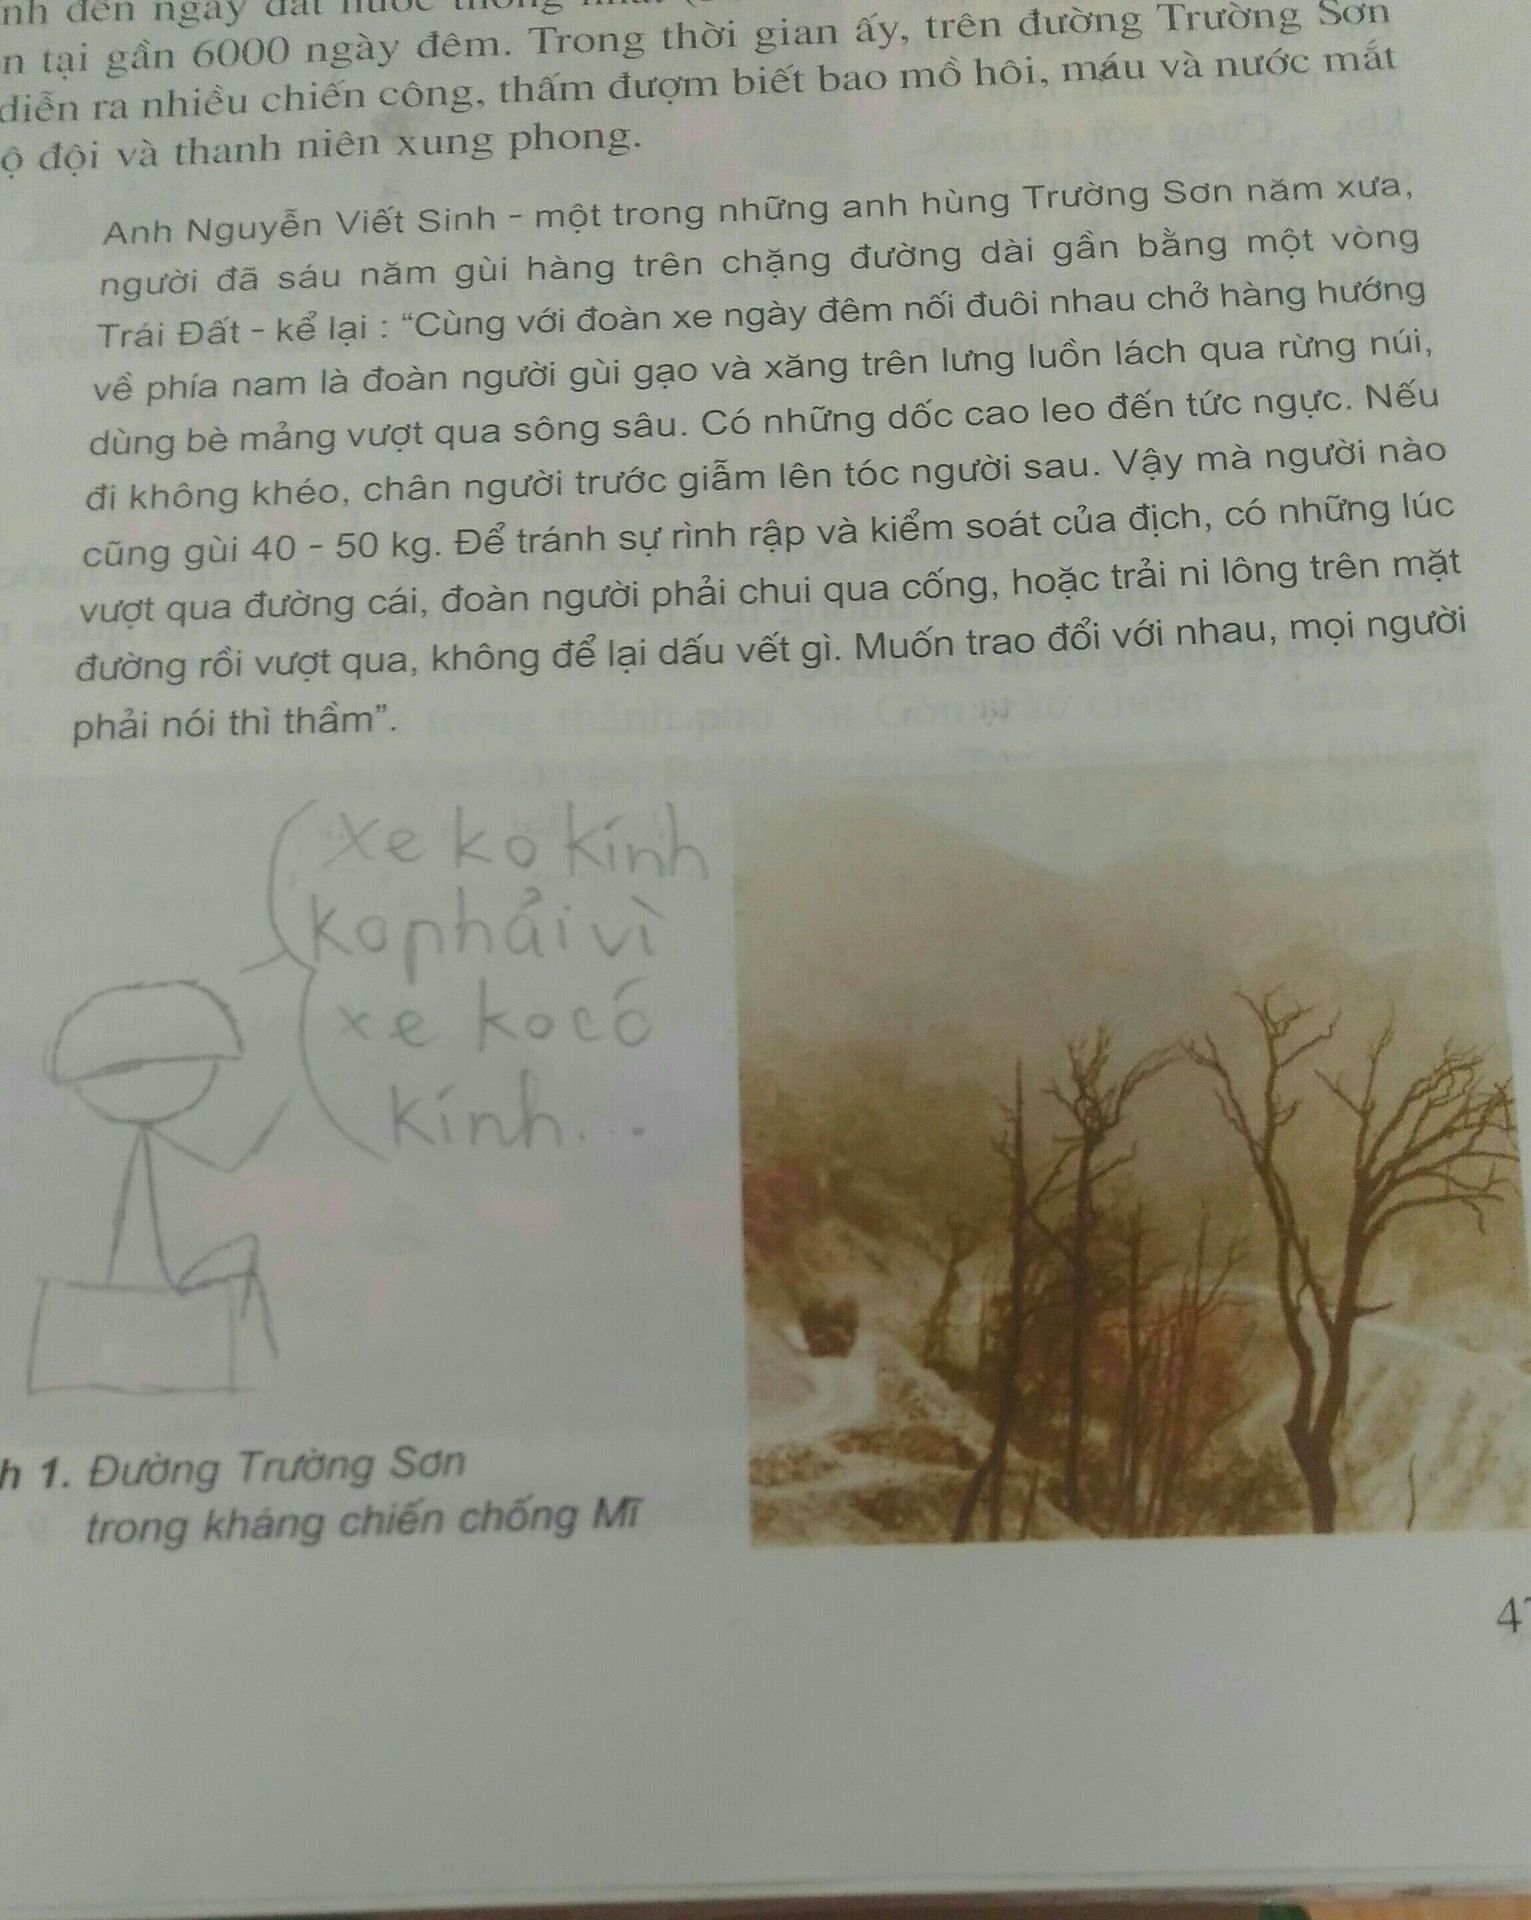 đến ngày đất nước thống nhất
tại gần 6000 ngày đêm. Trong thời gian ấy, trên đường Trường Sơn
diễn ra nhiều chiến công, thấm đượm biết bao mồ hôi, máu và nước mắt
đội và thanh niên xung phong.
Anh Nguyễn Viết Sinh - một trong những anh hùng Trường Sơn năm xưa,
người đã sáu năm gùi hàng trên chặng đường dài gần bằng một vòng
Trái Đất - kể lại : “Cùng với đoàn xe ngày đêm nối đuôi nhau chở hàng hướng
về phía nam là đoàn người gùi gạo và xăng trên lưng luồn lách qua rừng núi,
dùng bè mảng vượt qua sông sâu. Có những dốc cao leo đến tức ngực. Nếu
đi không khéo, chân người trước giẫm lên tóc người sau. Vậy mà người nào
cũng gùi 40 - 50 kg. Để tránh sự rình rập và kiểm soát của địch, có những lúc
vượt qua đường cái, đoàn người phải chui qua cống, hoặc trải ni lông trên mặt
đường rồi vượt qua, không để lại dấu vết gì. Muốn trao đổi với nhau, mọi người
phải nói thì thầm”.
xe ko kính
ko phải vì
xe ko có
kính...
1. Đường Trường Sơn
trong kháng chiến chống Mĩ